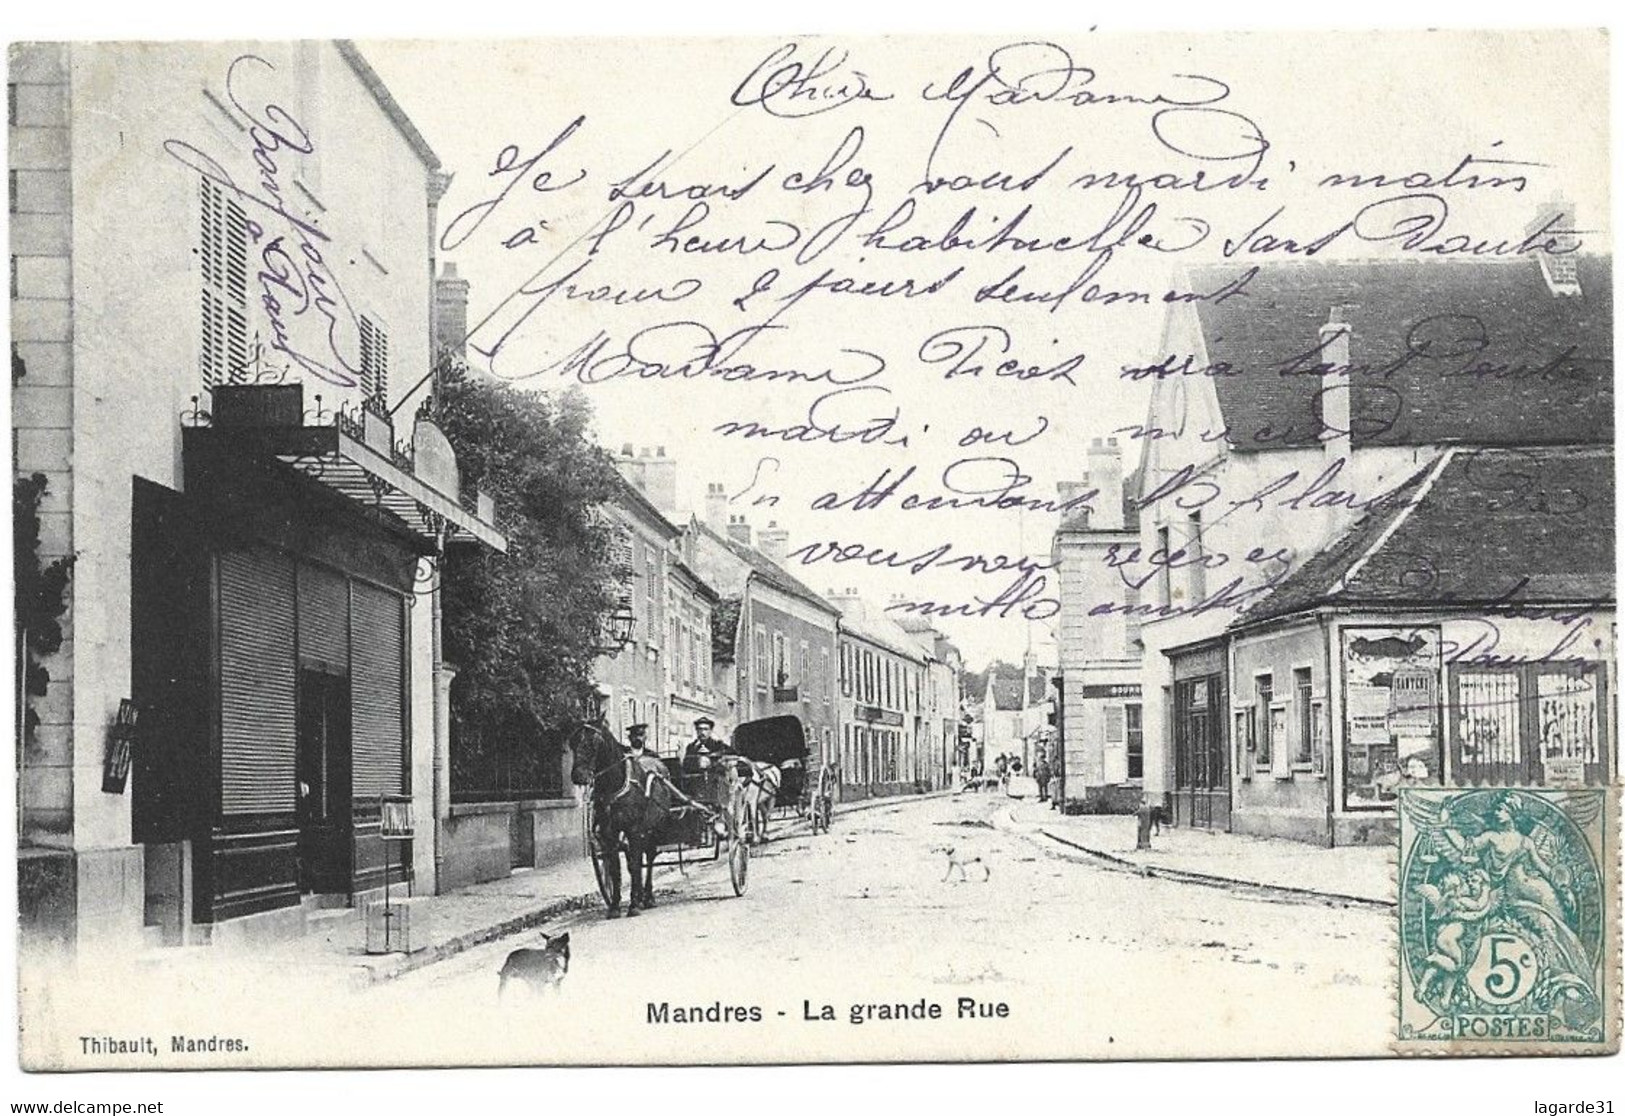 Chère Madame
Je serais chez vous mardi matin
à l'heure habituelle sans Doute
pour 2 jours seulement
Madame Picot ira sans Doute
mardi ou mercredi
En attendant le plaisir de
vous voir recevez
mille amitiés de tous
Pauline
Bonjour
à tous
5c
POSTES
Mandres - La grande Rue
Thibault, Mandres.
www.delcampe.net
lagarde31